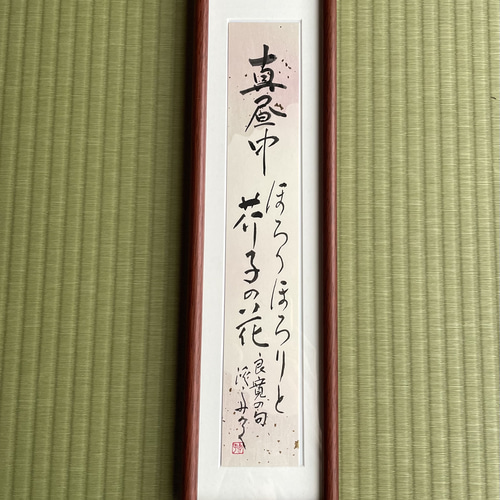 真昼中
ほろりほろりと
芥子の花
良寛の句